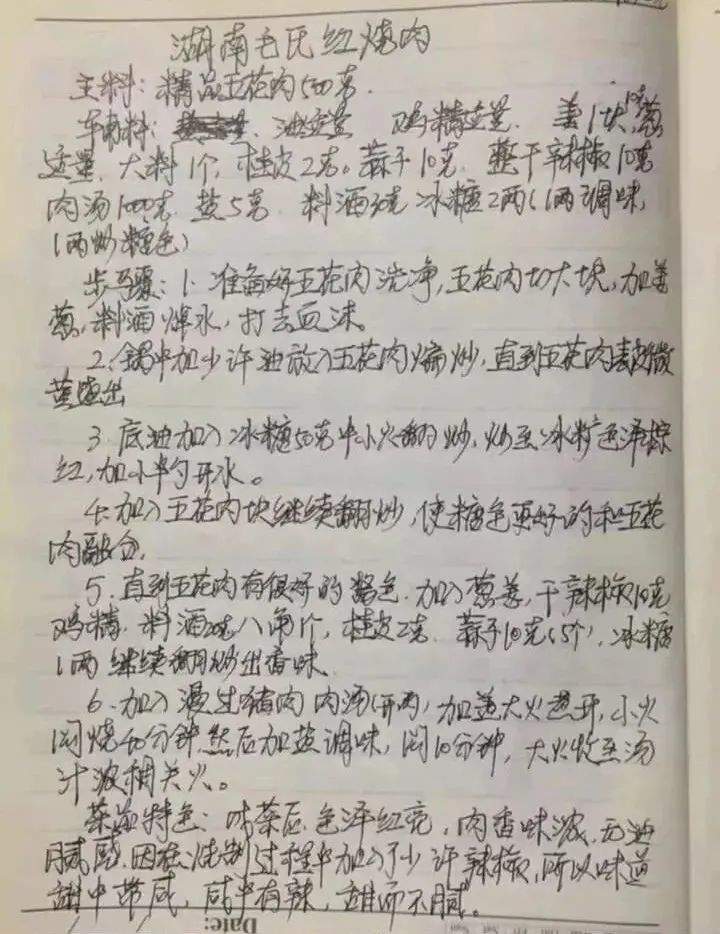 湖南毛氏红烧肉
主料：精品五花肉500克.
辅料：油适量 鸡精适量. 姜1块10克葱
适量. 大料1个, 桂皮2克. 蒜子10克. 整干辣椒10克
肉汤1000克. 盐5克. 料酒30克 冰糖2两(1两调味,
1两炒糖色)
步骤：1. 准备好五花肉洗净,五花肉切大块,加姜
葱,料酒焯水,打去血沫.
2.锅中加少许油放入五花肉煸炒,直到五花肉表皮微
黄盛出
3. 底油加入冰糖50克中小火翻炒,炒至冰糖色泽棕
红,加小半勺开水。
4.加入五花肉块继续翻炒,使糖色更好的和五花
肉融合.
5.直到五花肉有很好的酱色.加入葱姜,干辣椒10克
鸡精.料酒20克八角1个,桂皮2克.蒜子10克(5个).冰糖
1两 继续翻炒出香味
6.加入漫过猪肉 肉汤(开两),加盖大火煮开,小火
闷烧40分钟然后加盐调味,闷10分钟,大火收至汤
汁浓稠关火。
菜品特色：此菜 色泽红亮,肉香味浓.无油
腻感.因在 制过程中加入了少许辣椒,所以味道
甜中带咸,咸中有辣,甜而不腻。
Date: